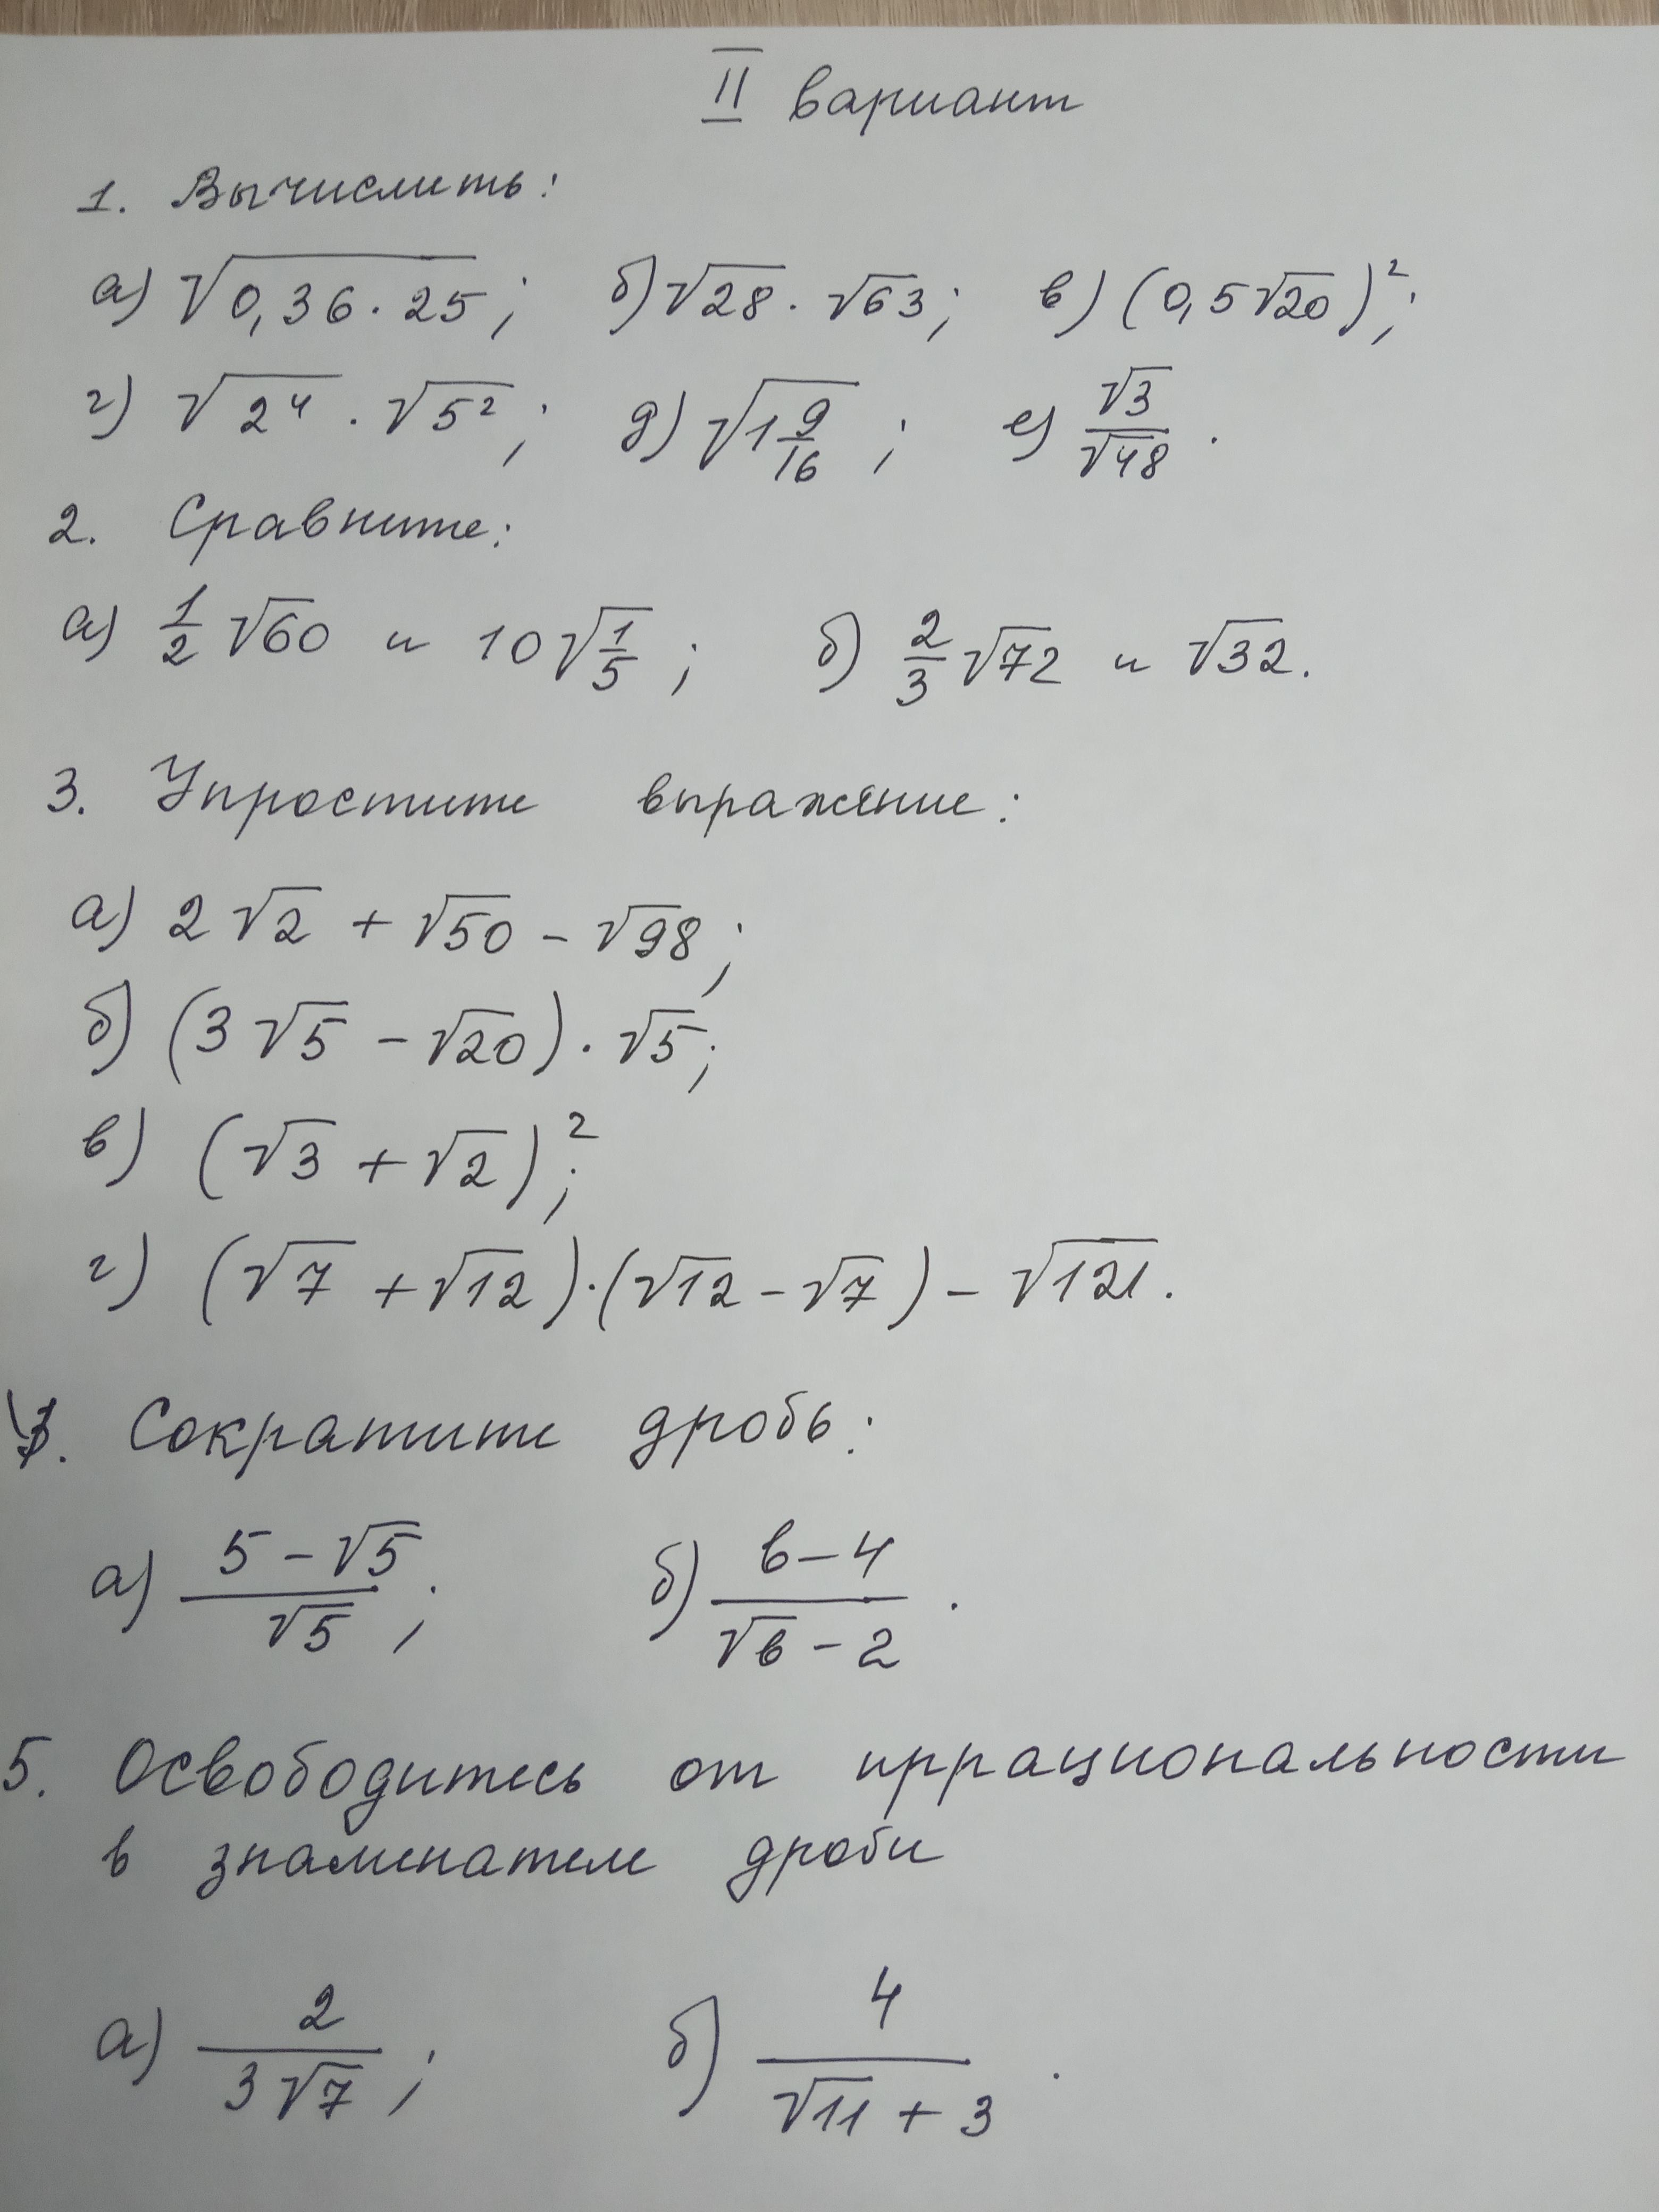 II вариант
1. Вычислить:
а) √0,36·25; б) √28 · √63; в) (0,5√20)²;
г) √2⁴ · √5²; д) √1 9/16; е) √3/√48.
2. Сравните:
а) 1/2 √60 и 10√1/5; б) 2/3 √72 и √32.
3. Упростите выражение:
а) 2√2 + √50 - √98;
б) (3√5 - √20) · √5;
в) (√3 + √2)²;
г) (√7 + √12)·(√12 - √7) - √121.
Сократите дробь:
а) 5-√5/√5; б) в-4/√в-2.
5. Освободитесь от иррациональности
в знаменателе дроби
а) 2/3√7; б) 4/√11 + 3.